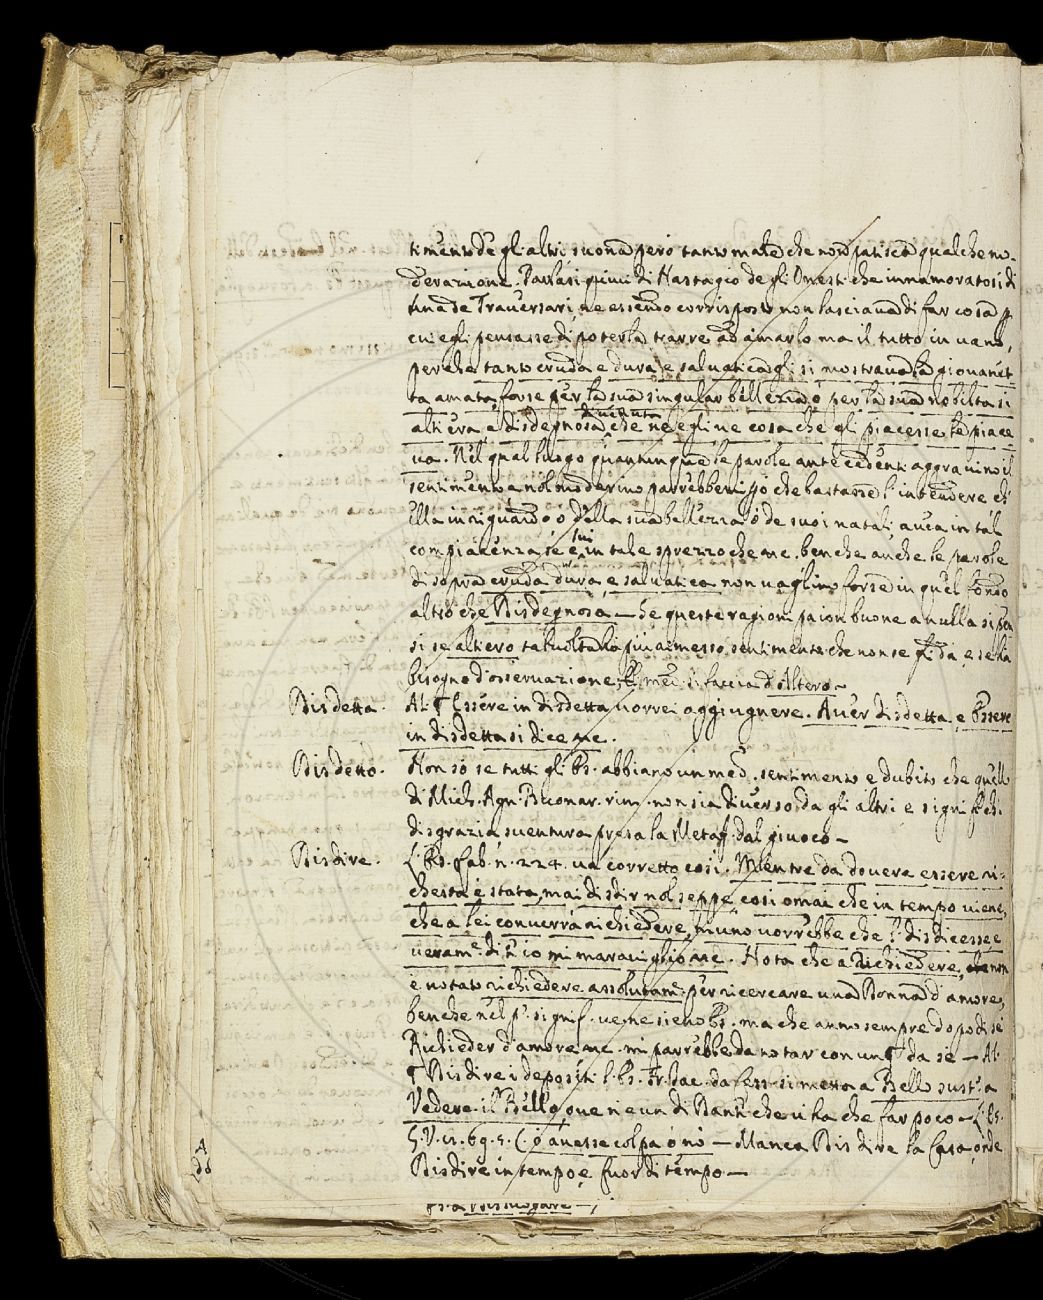 timento de gli altri, suona però tanto male che non patisca qualche mo-
derazione. Parlasi quivi di Nastagio degli Onesti che innamoratosi di
una de Traversari, ne essendo corrisposto non lasciava di far cosa p
cui egli pensasse di poterla trarre ad amarlo ma il tutto in vano,
perche tanto cruda e dura e salvatica gli si mostrava la giovanet-
ta amata, forse per la sua singular bellezza o per la sua nobiltà si
altiera e disdegnosa divenuta che ne egli ne cosa che gli piacesse le piace
va. Nel qual luogo quantunque le parole antecedenti aggravino il
sentimento e nol moderino parrebbemi che bastasse l'intendere ch'
ella in riguardo o della sua bellezza o de suoi natali avea in tal
compiacenza se e lui in tale sprezzo che ne. benche anche le parole
di sopra cruda dura, e salvatica non vaglino forse in quel fondo
altro che Disdegnosa — Se queste ragioni paion buone a nulla si pen
si se altiero talvolta più ammesso sentimento che non se gli da, e se ha
bisogno d'osservazione, si faccia ad Altero —
Disdetta. Al. § Essere in disdetta vorrei aggiugnere. Aver disdetta, e Essere
in disdetta si dice ne.
Disdetto. Non so se tutti gli Es. abbiano un med. sentimento e dubito che quello
di Mich. Agn. Buonar. rim. non sia diverso da gli altri e significhi
disgrazia, sventura presa la Metaf. dal giuoco —
Disdire. L'Es. Fab. n. 224. va corretto così. Mentre da dovere essere ri-
chesta è stata, mai disdir nol seppe, così omai che in tempo viene,
che a lei converrà richiedere, niuno vorrebbe che l' disdicesse, e
veram.e di ciò mi maraviglio ne. Nota che a Richiedere, non
e notato richiedere assolutam. per ricercare una Donna d'amore,
benche nel p.o signif. ve ne sieno Es. ma che anno sempre dopo di se
Richieder d'amore ne. mi parrebbe da notar con un § da se — Al.
§ Disdire i depositi l'Es. Fr. Sac. si metta a Bello sust. a
Vedere il Bello, ove ne è un di Dante che vi ha che far poco — L'Es.
G. V. 12. 69. 5. (o avesse colpa o no — Manca Disdire la Casa, onde
Disdire in tempo, e fuor di tempo —